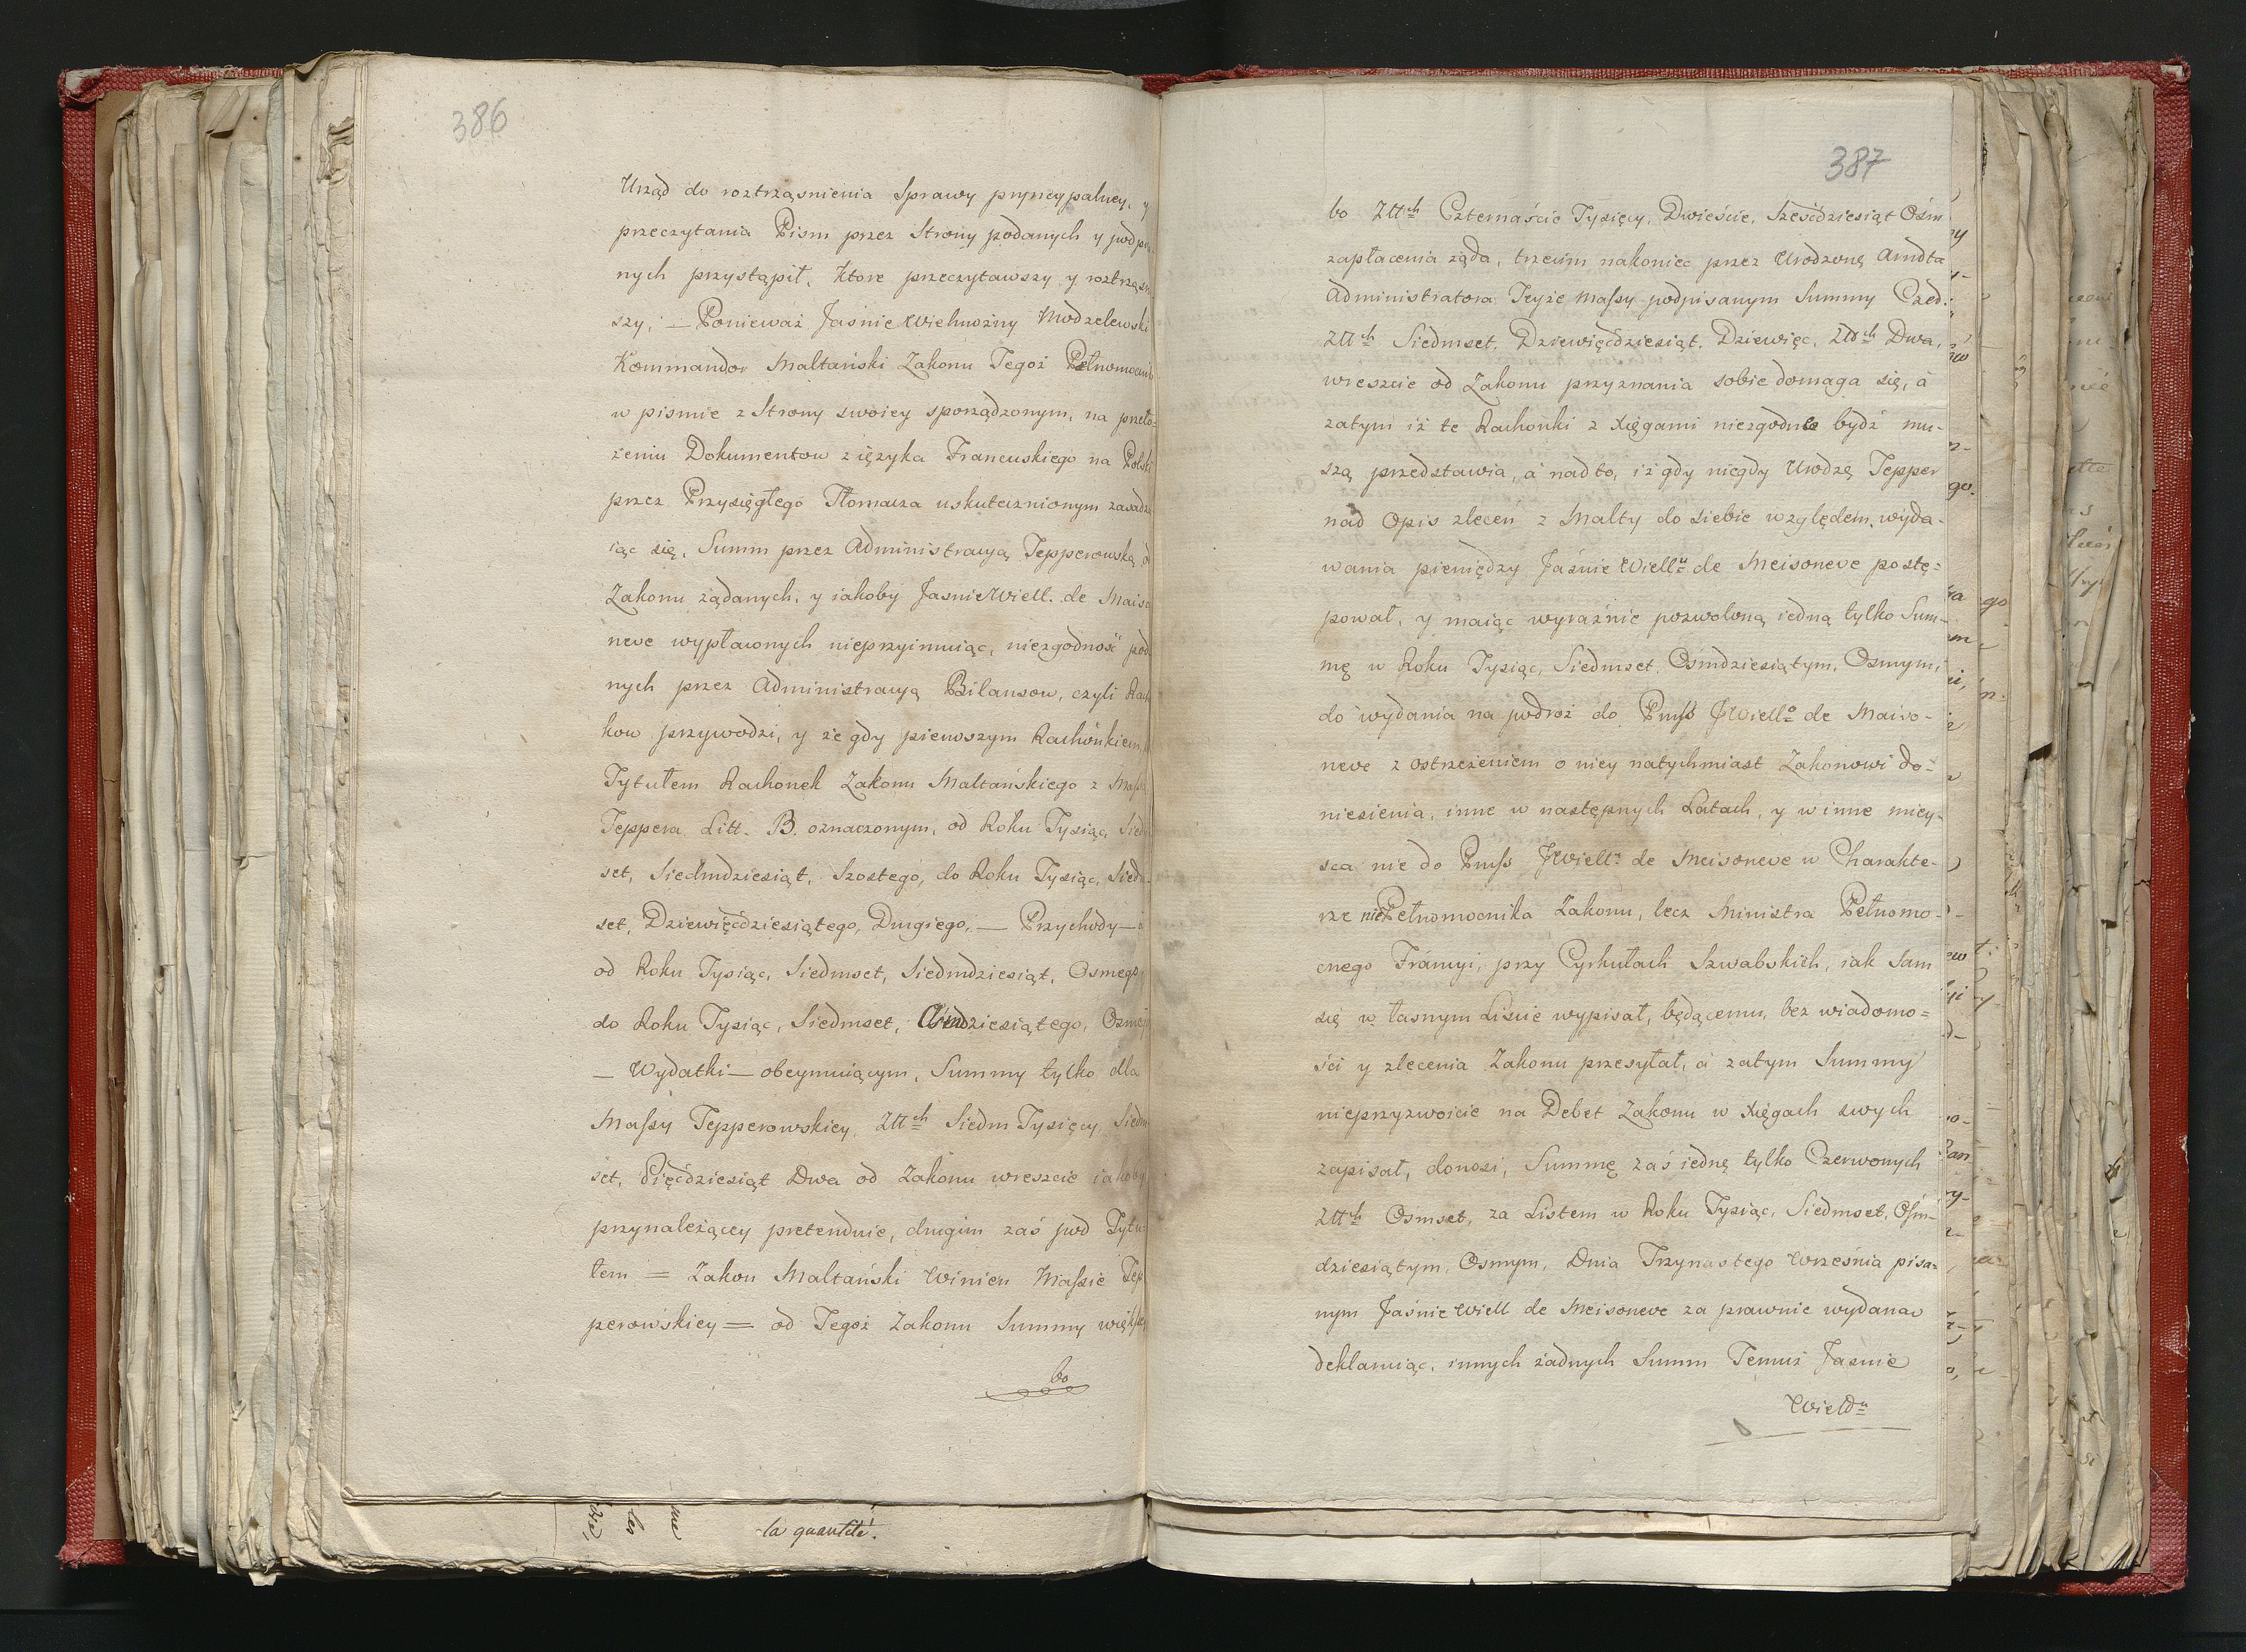 386
Urząd do roztrząsnienia Sprawy pryncypalney, y
przeczytania Pism przez Strony podanych y podpi
nych przystąpił, ktore przeczytawszy y roztrząsn
szy, — Ponieważ Jasnie Wielmożny Modzelewski
Kommandor Maltański Zakonu Tegoż Pełnomocnik
w pismie z Strony swoiey sporządzonym, na przeło-
żeniu Dokumentow z ięzyka Francuskiego na Polski
przez Przysięgłego Tłomacza uskutecznionym zasadza
iąc się, Summ przez Administracyą Tepperowską od
Zakonu żądanych, y iakoby Jasnie Wiell. de Maiso
neve wypłaconych nieprzyimuiąc, niezgodność pod
nych przez Administracyą Bilansow, czyli Rach
kow przywodzi, y że gdy pierwszym Rachonkiem
Tytułem Rachonek Zakonu Maltańskiego z Massą
Teppera Litt. B. oznaczonym, od Roku Tysiąc Siedm
set, Siedmdziesiąt, Szostego, do Roku Tysiąc, Siedm-
set, Dziewięćdziesiątego, Drugiego, — Przychody — a
od Roku Tysiąc, Siedmset, Siedmdziesiąt, Osmego
do Roku Tysiąc, Siedmset, Osmdziesiątego, Osmego
— Wydatki — obeymuiącym, Summy tylko dla
Massy Tepperowskiey, Złłch Siedm Tysięcy, Siedm
set, Pięćdziesiąt Dwa od Zakonu wreszcie iakoby
przynależącey pretenduie, drugim zaś pod Tytu-
łem = Zakon Maltański Winien Massie Tep
perowskiey = od Tegoż Zakonu Summy większey
bo
la quantité.
387
bo Złłch Czternaście Tysięcy, Dwieście, Sześćdziesiąt Ośm
zapłacenia żąda, trzecim nakoniec przez Urodzonę Arndta
Administratora Teyże Massy podpisanym Summy Czed.
Złłch Siedmset, Dziewięćdziesiąt, Dziewięc, Złłch Dwa,
wreszcie od Zakonu przyznania sobie domaga się, á
zatym iż te Rachonki z Xięgami niezgodne bydź mu-
szą przedstawia, á nadto, iż gdy niegdy Urodzę Tepper
nad Opis zleceń z Malty do siebie względem wyda-
wania pieniędzy Jaśnie Wiellu de Meisoneve postę-
pował, y maiąc wyraźnie pozwoloną iedną tylko Sum-
mę w Roku Tysiąc, Siedmset, Osmdziesiątym, Osmym,
do wydania na podroż do Pruss JWiello de Maiso-
neve z ostrzeżeniem o niey natychmiast Zakonowi do-
niesienia, inne w następnych Latach, y w inne miey-
sca nie do Pruss JWiellu de Meisoneve w Charakte-
rze nie Pełnomocnika Zakonu, lecz Ministra Pełnomo-
cnego Francyi, przy Cyrkułach Szwabskich, iak Sam
się w łasnym Liście wypisał, będącemu, bez wiadomo-
ści y zlecenia Zakonu przesyłał, á zatym Summy
nieprzyzwoicie na Debet Zakonu w Xięgach swych
zapisał, donosi, Summę zaś iednę tylko Czerwonych
Złłch Osmset, za Listem w Roku Tysiąc, Siedmset, Ośm-
dziesiątym, Osmym, Dnia Trzynastego Września pisa-
nym Jaśnie Wiell de Meisoneve za prawnie wydaną
deklaruiąc, innych żadnych Summ Temuż Jaśnie
Wielłu